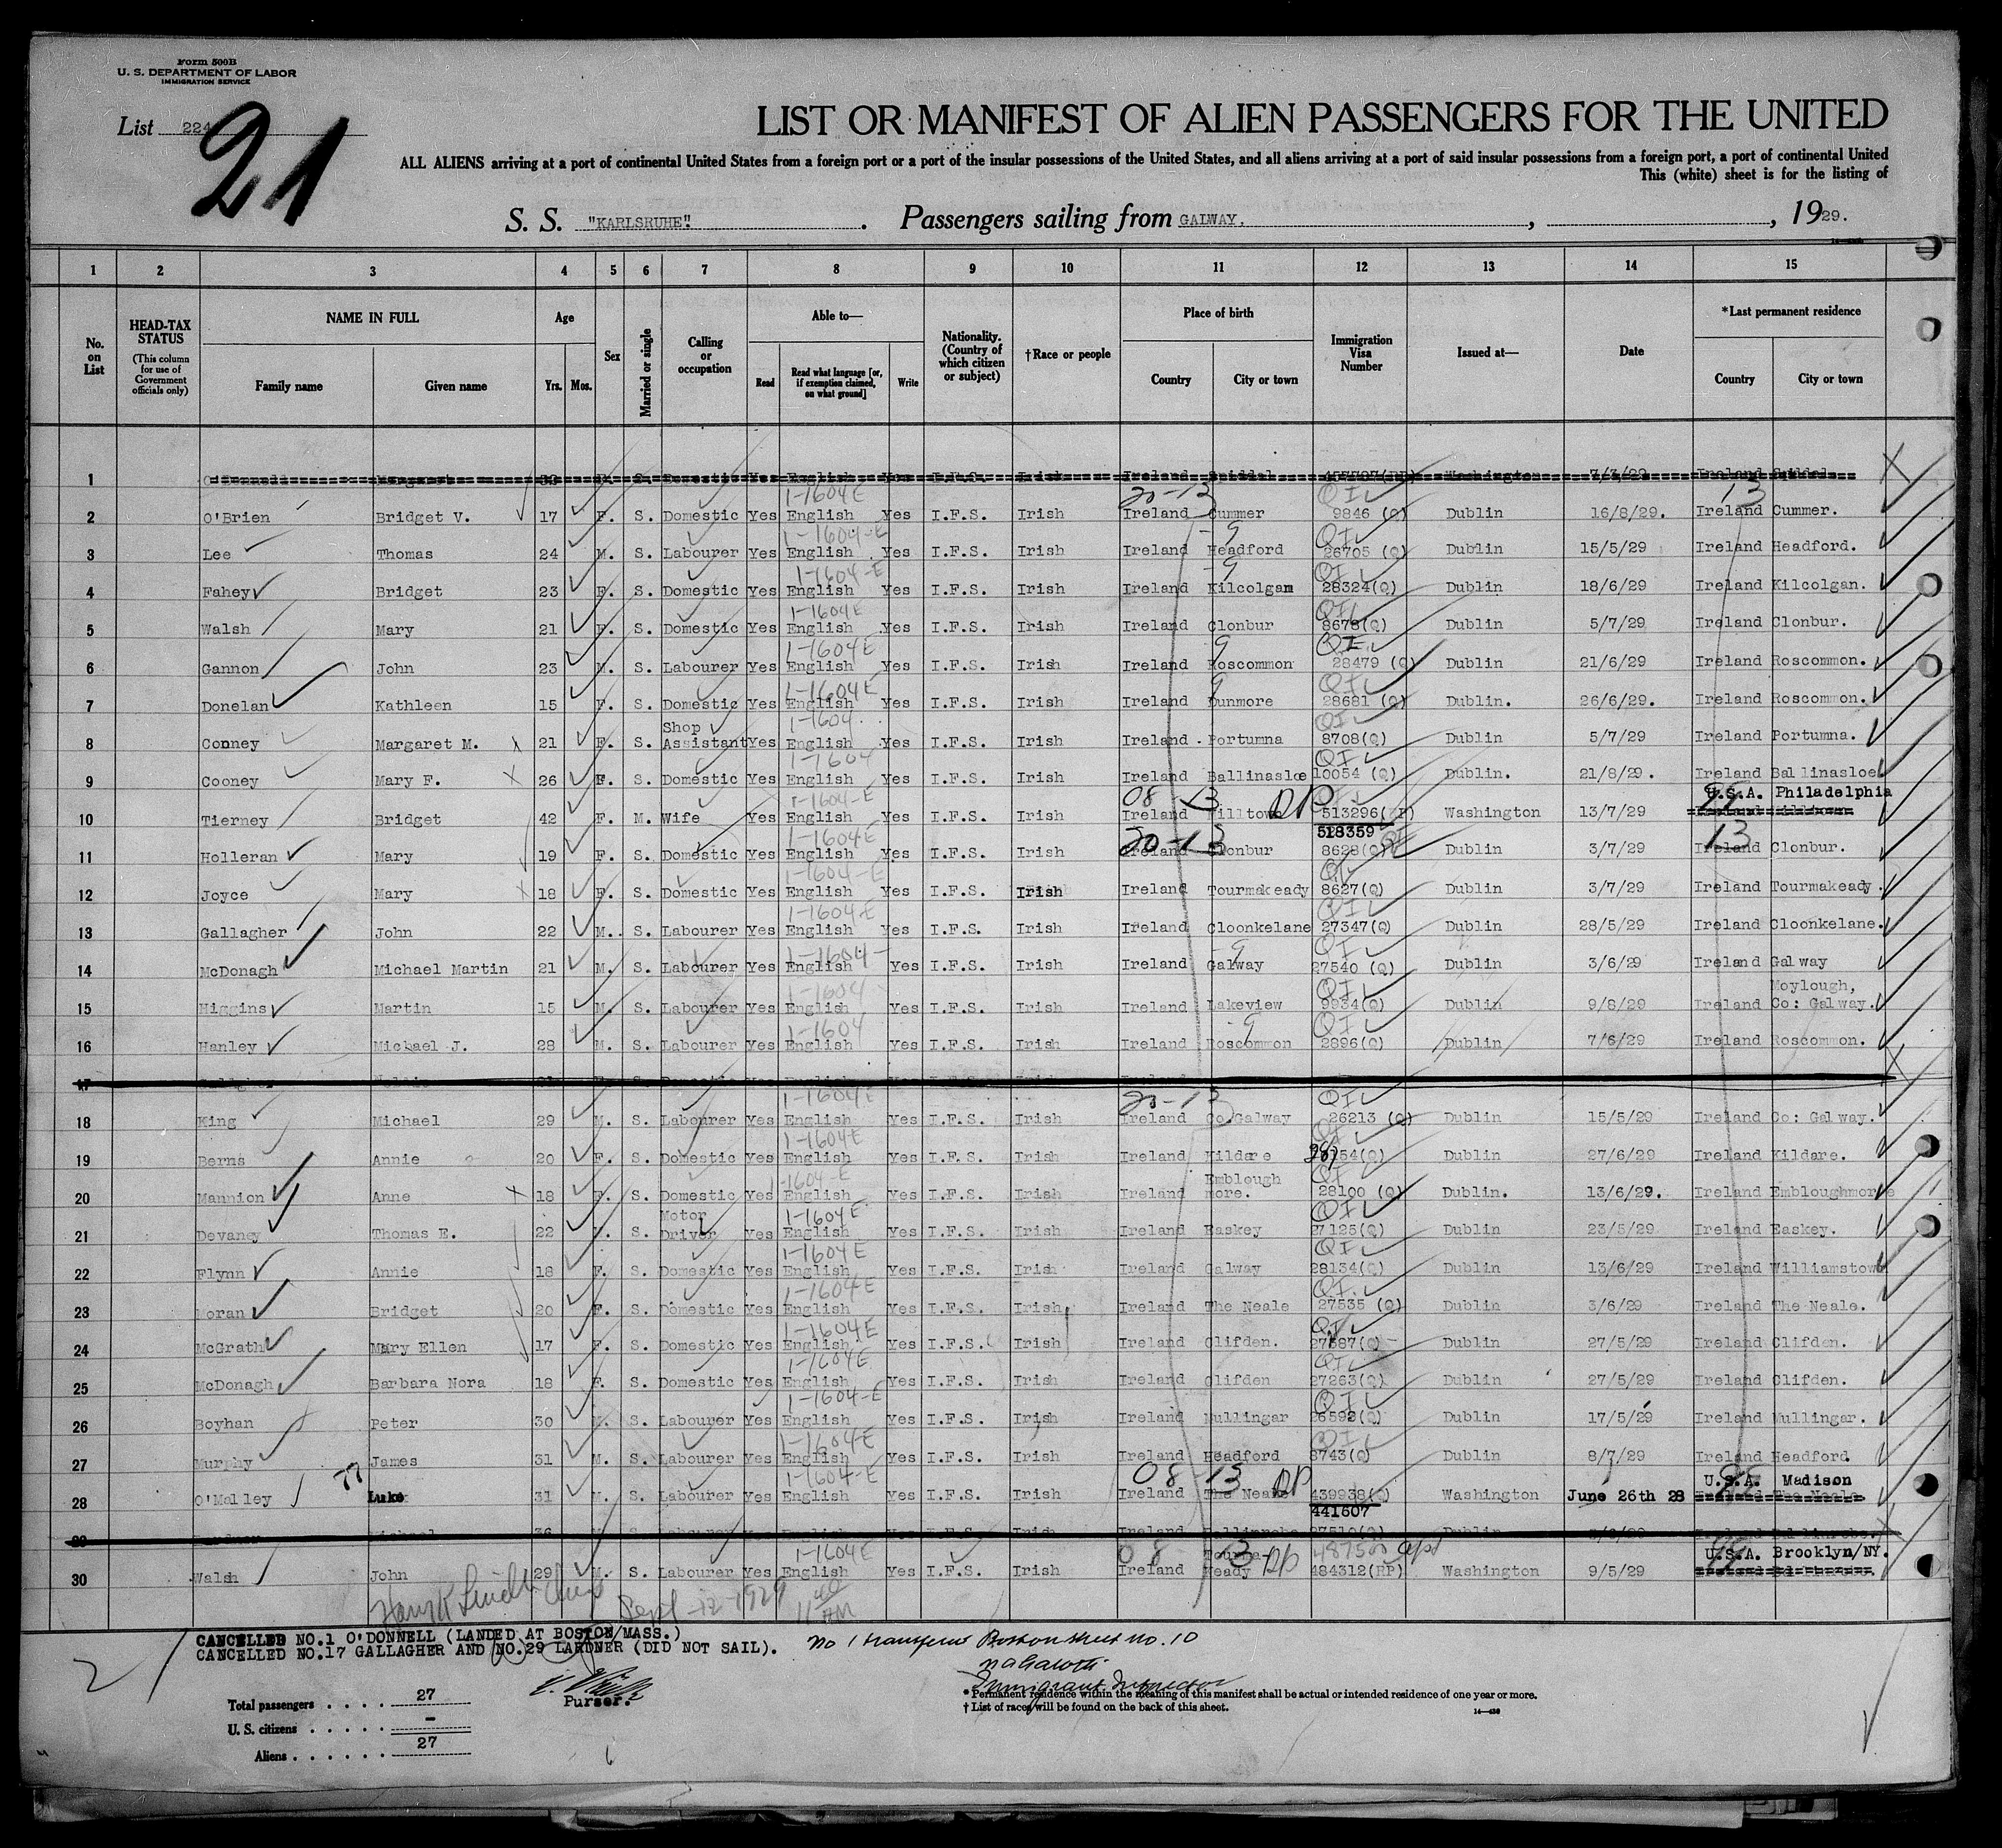 Form 500B
U. S. DEPARTMENT OF LABOR
IMMIGRATION SERVICE
List 224
21
LIST OR MANIFEST OF ALIEN PASSENGERS FOR THE UNITED
ALL ALIENS arriving at a port of continental United States from a foreign port or a port of the insular possessions of the United States, and all aliens arriving at a port of said insular possessions from a foreign port, a port of continental United
This (white) sheet is for the listing of
S. S. "KARLSRUHE". Passengers sailing from GALWAY. , , 1929.
1 2 3 4 5 6 7 8 9 10 11 12 13 14 15
No. on List
HEAD-TAX STATUS (This column for use of Government officials only)
NAME IN FULL Family name Given name
Age Yrs. Mos.
Sex
Married or single
Calling or occupation
Able to— Read Read what language [or, if exemption claimed, on what ground] Write
Nationality. (Country of which citizen or subject)
†Race or people
Place of birth Country City or town
Immigration Visa Number
Issued at—
Date
*Last permanent residence Country City or town
1 O'Donnell Margaret F. S. Domestic Yes English Yes I.F.S. Irish Ireland Spiddal Washington 7/3/29 Ireland Spiddal
1-1604E 20-13 QI 13
2 O'Brien Bridget V. 17 F. S. Domestic Yes English Yes I.F.S. Irish Ireland Cummer 9846 (Q) Dublin 16/8/29. Ireland Cummer.
1-1604-E 9 QI
3 Lee Thomas 24 M. S. Labourer Yes English Yes I.F.S. Irish Ireland Headford 26705 (Q) Dublin 15/5/29 Ireland Headford.
1-1604-E 9 QI
4 Fahey Bridget 23 F. S. Domestic Yes English Yes I.F.S. Irish Ireland Kilcolgan 28324(Q) Dublin 18/6/29 Ireland Kilcolgan.
1-1604E QI
5 Walsh Mary 21 F. S. Domestic Yes English Yes I.F.S. Irish Ireland Clonbur 8678(Q) Dublin 5/7/29 Ireland Clonbur.
1-1604E 9 QI
6 Gannon John 23 M. S. Labourer Yes English Yes I.F.S. Irish Ireland Roscommon 28479 (Q) Dublin 21/6/29 Ireland Roscommon.
1-1604E 9 QI
7 Donelan Kathleen 15 F. S. Domestic Yes English Yes I.F.S. Irish Ireland Dunmore 28681 (Q) Dublin. 26/6/29. Ireland Roscommon.
1-1604 QI
8 Conney Margaret M. 21 F. S. Shop Assistant Yes English Yes I.F.S. Irish Ireland Portumna 8708(Q) Dublin 5/7/29 Ireland Portumna.
1-1604 QI
9 Cooney Mary F. 26 F. S. Domestic Yes English Yes I.F.S. Irish Ireland Ballinasloe 10054 (Q) Dublin. 21/8/29. Ireland Ballinasloe
1-1604-E 08-13 DP U.S.A. Philadelphia
10 Tierney Bridget 42 F. M. Wife Yes English Yes I.F.S. Irish Ireland Milltown 513296(RP) Washington 13/7/29 Ireland Milltown
1-1604E 20-13 518359 13
11 Holleran Mary 19 F. S. Domestic Yes English Yes I.F.S. Irish Ireland Clonbur 8628(Q) QI Dublin 3/7/29 Ireland Clonbur.
1-1604-E QI
12 Joyce Mary 18 F. S. Domestic Yes English Yes I.F.S. Irish Ireland Tourmakeady 8627(Q) Dublin 3/7/29 Ireland Tourmakeady.
1-1604-E QI
13 Gallagher John 22 M. S. Labourer Yes English Yes I.F.S. Irish Ireland Cloonkelane 27347(Q) Dublin 28/5/29 Ireland Cloonkelane.
1-1604- 9 QI
14 McDonagh Michael Martin 21 M. S. Labourer Yes English Yes I.F.S. Irish Ireland Galway 27540 (Q) Dublin 3/6/29 Ireland Galway
1-1604 QI
15 Higgins Martin 15 M. S. Labourer Yes English Yes I.F.S. Irish Ireland Lakeview 9934(Q) Dublin 9/8/29 Ireland Moylough, Co: Galway.
1-1604 9 QI
16 Hanley Michael J. 28 M. S. Labourer Yes English Yes I.F.S. Irish Ireland Roscommon 2896(Q) Dublin 7/6/29 Ireland Roscommon.
17
1-1604E 20-13 QI
18 King Michael 29 M. S. Labourer Yes English Yes I.F.S. Irish Ireland Co.Galway 26213 (Q) Dublin 15/5/29 Ireland Co: Galway.
1-1604E QI
19 Berns Annie 20 F. S. Domestic Yes English Yes I.F.S. Irish Ireland Kildare Dublin 27/6/29 Ireland Kildare.
1-1604-E QI
20 Mannion Anne 18 F. S. Domestic Yes English Yes I.F.S. Irish Ireland Emblough more. 28100 (Q) Dublin. 13/6/29. Ireland Embloughmore
1-1604E QI
21 Devaney Thomas E. 22 M. S. Motor Driver Yes English Yes I.F.S. Irish Ireland Easkey 27125(Q) Dublin 23/5/29 Ireland Easkey.
1-1604E QI
22 Flynn Annie 18 F. S. Domestic Yes English Yes I.F.S. Irish Ireland Galway 28134(Q) Dublin 13/6/29 Ireland Williamstown
1-1604E QI
23 Moran Bridget 20 F. S. Domestic Yes English Yes I.F.S. Irish Ireland The Neale 27535 (Q) Dublin 3/6/29 Ireland The Neale.
1-1604E QI
24 McGrath Mary Ellen 17 F. S. Domestic Yes English Yes I.F.S. Irish Ireland Clifden. 27587(Q) Dublin 27/5/29 Ireland Clifden.
1-1604E QI
25 McDonagh Barbara Nora 18 F. S. Domestic Yes English Yes I.F.S. Irish Ireland Clifden 27263(Q) Dublin 27/5/29 Ireland Clifden.
1-1604-E QI
26 Boyhan Peter 30 M. S. Labourer Yes English Yes I.F.S. Irish Ireland Mullingar 26592(Q) Dublin 17/5/29 Ireland Mullingar.
1-1604E QI
27 Murphy James 31 M. S. Labourer Yes English Yes I.F.S. Irish Ireland Headford 8743(Q) Dublin 8/7/29 Ireland Headford
1-1604-E 08-13 DP U.S.A. Madison
28 O'Malley Luke 31 M. S. Labourer Yes English Yes I.F.S. Irish Ireland The Neale 439938(Q) Washington June 26th 28 Ireland The Neale
441607
29 Lardner Michael 36 M. S. Labourer Yes English Yes I.F.S. Irish Ireland Ballinrobe 27510(Q) Dublin Ireland Ballinrobe.
1-1604E 08 13 DP U.S.A. Brooklyn/NY.
30 Walsh John 29 M. S. Labourer Yes English Yes I.F.S. Irish Ireland Tourma- Keady 484312(RP) Washington 9/5/29
Sept-12-1929 11 40 AM
CANCELLED NO.1 O'DONNELL (LANDED AT BOSTON/MASS.)
CANCELLED NO.17 GALLAGHER AND NO.29 LARDNER (DID NOT SAIL).
No 1 transferred Boston sheet no. 10
Immigrant Inspector
Purser.
21
Total passengers . . . . 27
U. S. citizens . . . . . -
Aliens . . . . . . 27
* Permanent residence within the meaning of this manifest shall be actual or intended residence of one year or more.
† List of races will be found on the back of this sheet.
14—430